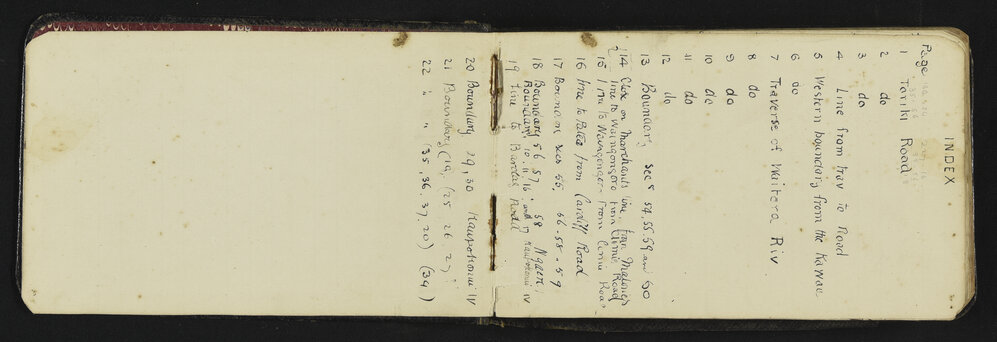 INDEX
Page
1 Tariki Road
2 do
3 do
4 Line from trav to Road
5 Western boundary from the Kaweae
6 do
7 Traverse of Waitera Riv
8 do
9 do
10 do
11 do
12 do
13 Boundary secs 54.55.59 and 60
14 Close on Marchants line from
line to Waingongoro from Climie Road
15 line to Waingongoro from Climie Road
16 line to Patea from Cardiff Road
17 Boundary secs 55, 56.58.59
18 Boundary 56 57. 58 Ngaere
Boundary 10.11.16. and 17 Kaupokonui IV
19 Line to Road
20 Boundary 29,30 Kaupokonui IV
21 Boundary (19, (25 26 2)
22 " " (35,36.37.20) (34)